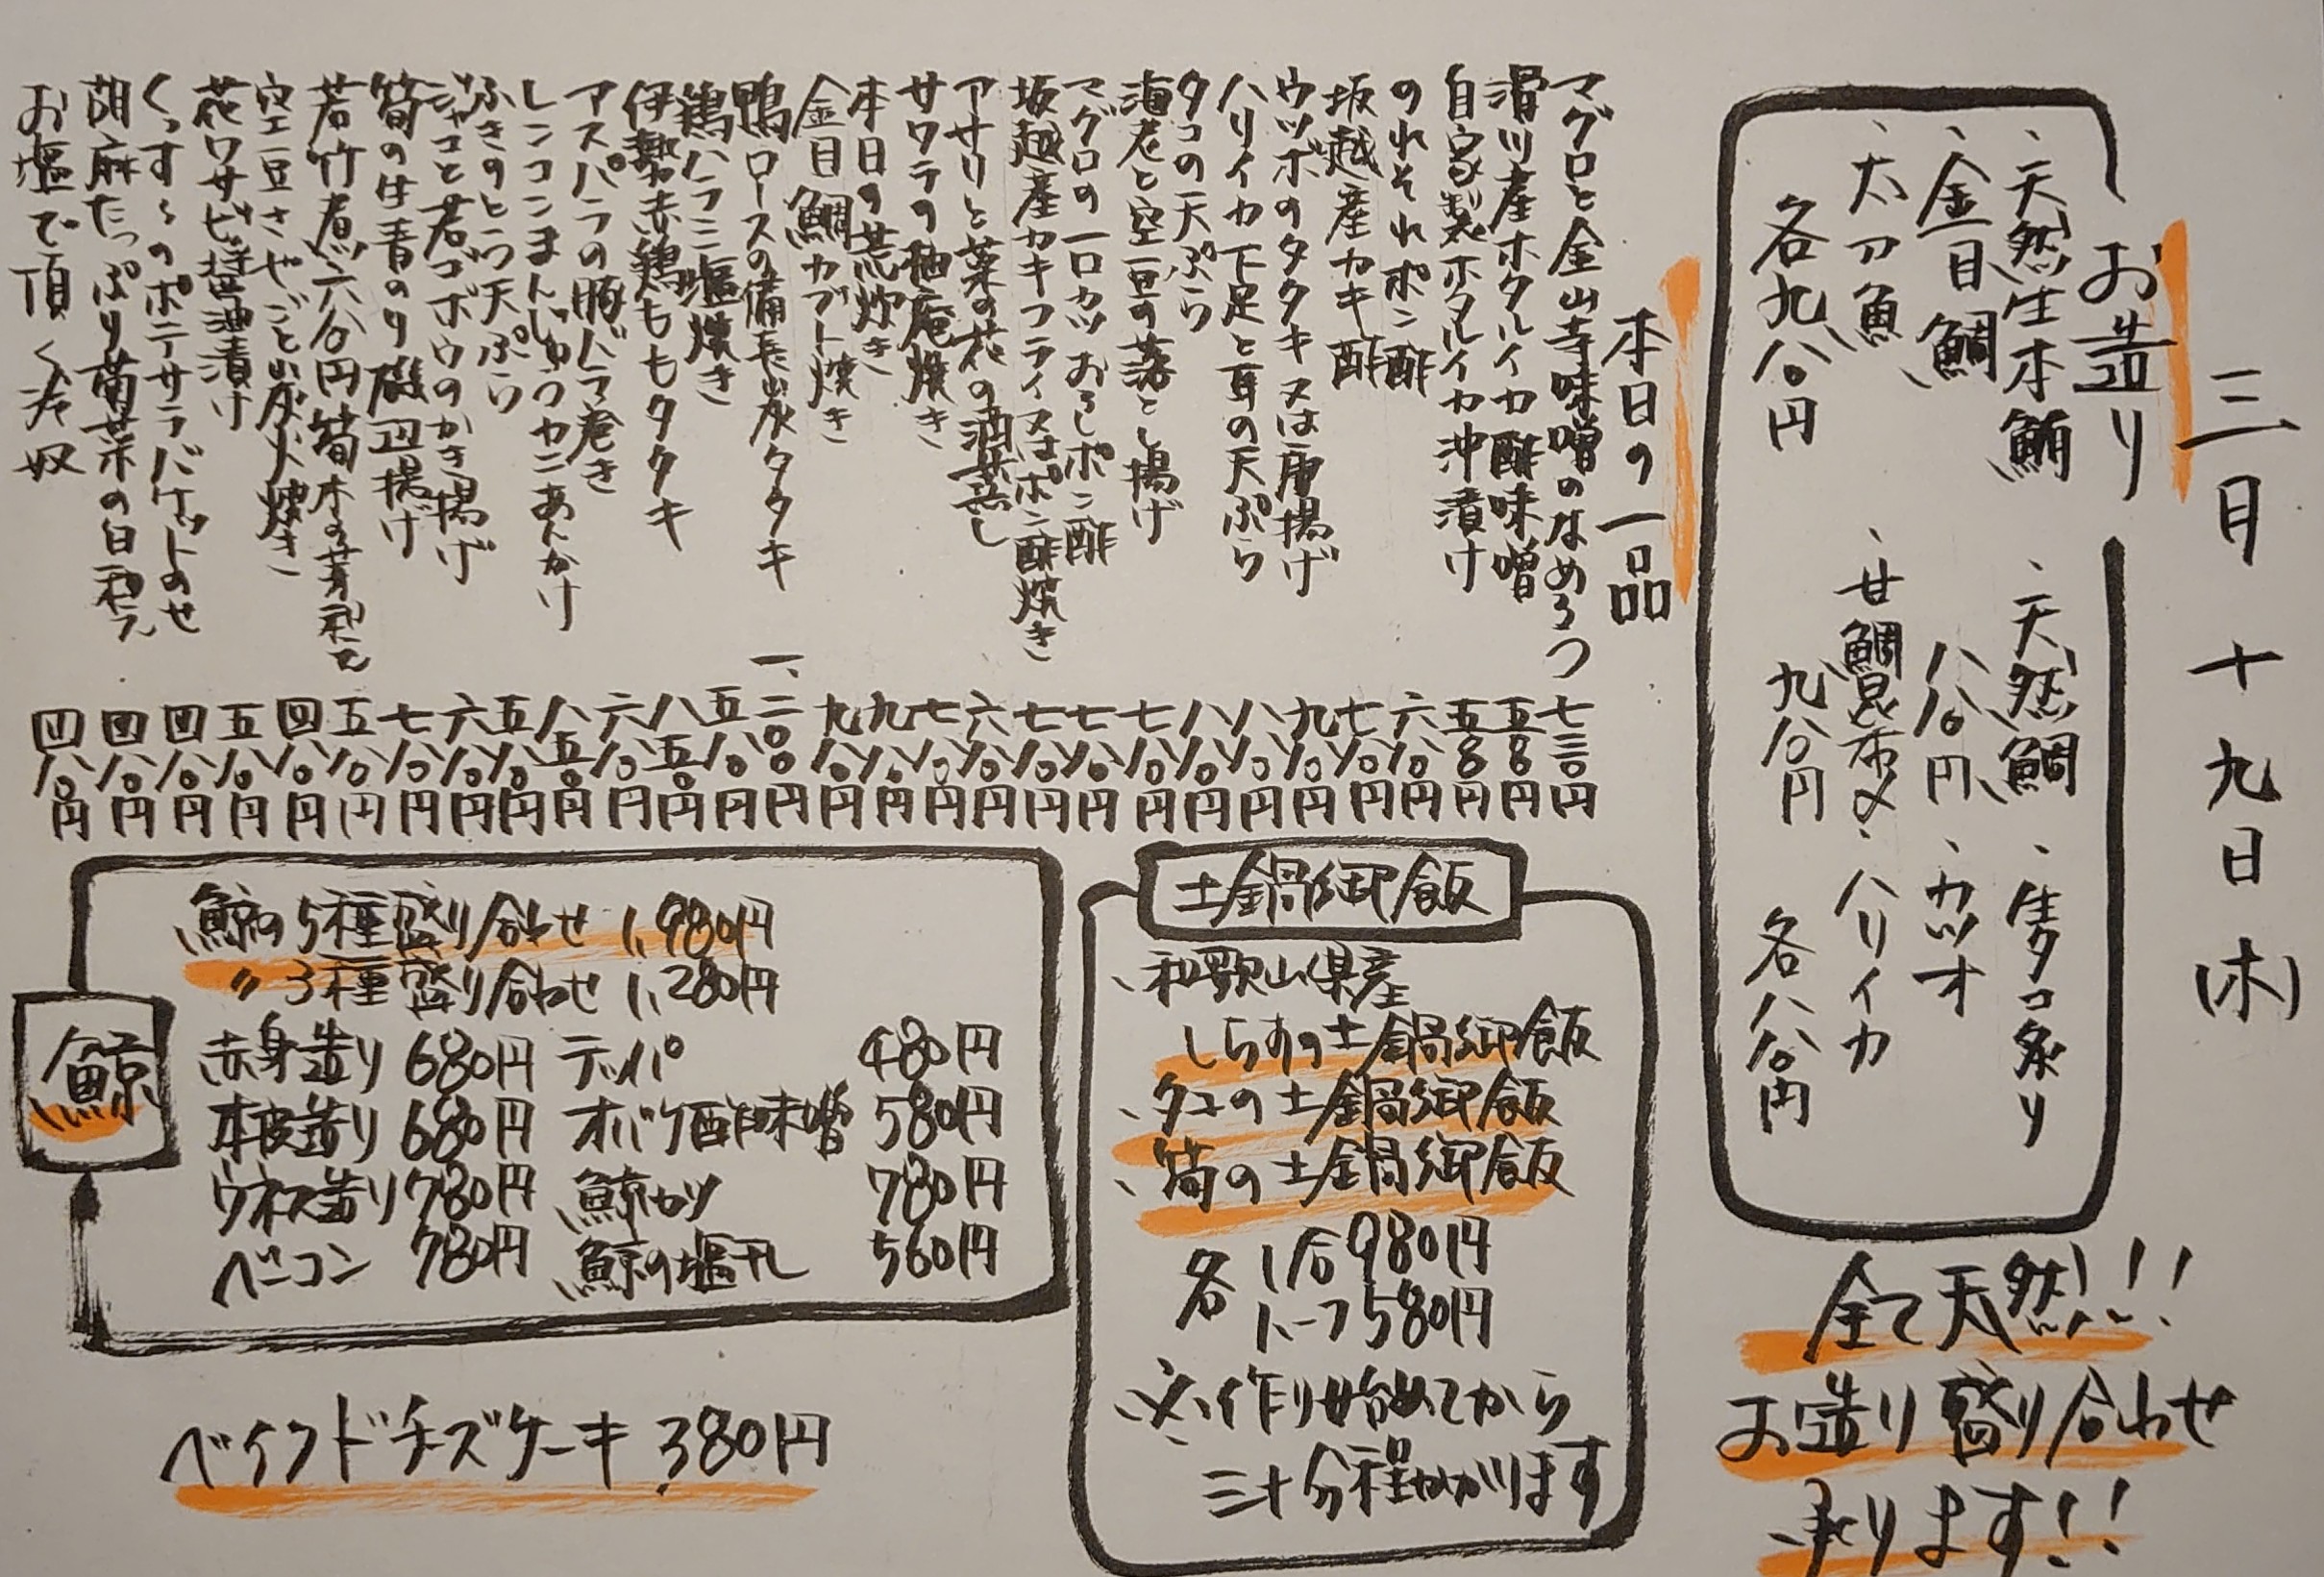 三月十九日(木)
お造り
、天然生本鮪 、天然鯛 、生タコ炙り
、金目鯛 八八〇円 、カツオ
、太刀魚 、甘鯛昆布〆 、ハリイカ
各九八〇円 九八〇円 各八八〇円
全て天然!!
お造り盛り合わせ
承ります!!
本日の一品
マグロと金山寺味噌のなめろう 七三〇円
滑川産ホタルイカ酢味噌 五八〇円
自家製ホタルイカ沖漬け 五八〇円
のれそれポン酢 六八〇円
坂越産カキ酢 七八〇円
ウツボのタタキ又は唐揚げ 九八〇円
ハリイカ下足と耳の天ぷら 八八〇円
タコの天ぷら 八八〇円
海老と空豆の落とし揚げ 七八〇円
マグロの一口カツおろしポン酢 七八〇円
坂越産カキフライ又はポン酢焼き 七八〇円
アサリと菜の花の酒蒸し 六八〇円
サワラの柚庵焼き 七八〇円
本日の荒炊き 九八〇円
金目鯛カブト焼き 九八〇円
鴨ロースの備長炭タタキ 一、二〇〇円
鶏ハラミ塩焼き 五八〇円
伊勢赤鶏ももタタキ 八五〇円
アスパラの豚バラ巻き 六八〇円
レンコンまんじゅうカニあんかけ 八五〇円
ふきのとう天ぷら 五八〇円
ジャコと若ゴボウのかき揚げ 六八〇円
筍のは青のり磯辺揚げ 七八〇円
若竹煮六八〇円 筍木の芽和え 五八〇円
空豆さやごと炭火焼き 四八〇円
花ワサビ醤油漬け 五八〇円
くっすぅのポテサラバケットのせ 四八〇円
胡麻たっぷり菊菜の白和え 四八〇円
お塩で頂く冷奴 四八〇円
土鍋御飯
、和歌山県産
しらすの土鍋御飯
、タコの土鍋御飯
、筍の土鍋御飯
各 1合980円
ハーフ580円
※作り始めてから
三十分程かかります
鯨
鯨の5種盛り合わせ 1,980円
〃3種盛り合わせ 1,280円
赤身造り 680円 テッパ 480円
本皮造り 680円 オバケ酢味噌 580円
ウネス造り 780円 鯨カツ 780円
ベーコン 780円 鯨の塩干し 560円
ベイクドチーズケーキ 380円